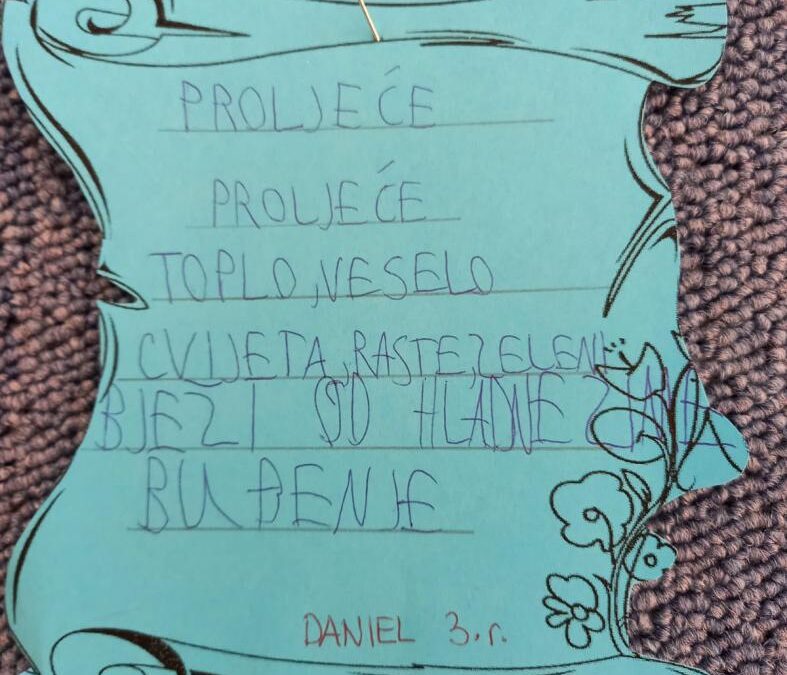 PROLJEĆE
PROLJEĆE
TOPLO, VESELO
CVIJETA, RASTE, ZELENI
BJEZI OD HLADNE ZIME
BUĐENJE
DANIEL 3. r.